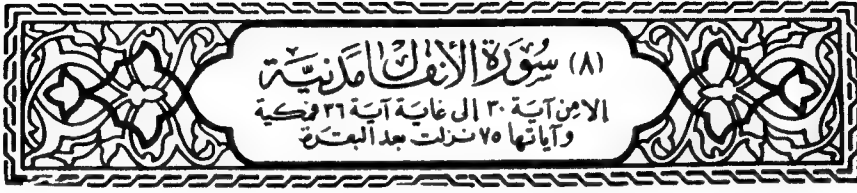 (٨) سُورَة الأنفال مَدَنيَّة
إلا مِن آيَة ٣٠ إلى غاية آيَة ٣٦ فمكية
وآياتها ٧٥ نزلت بعد البقرة